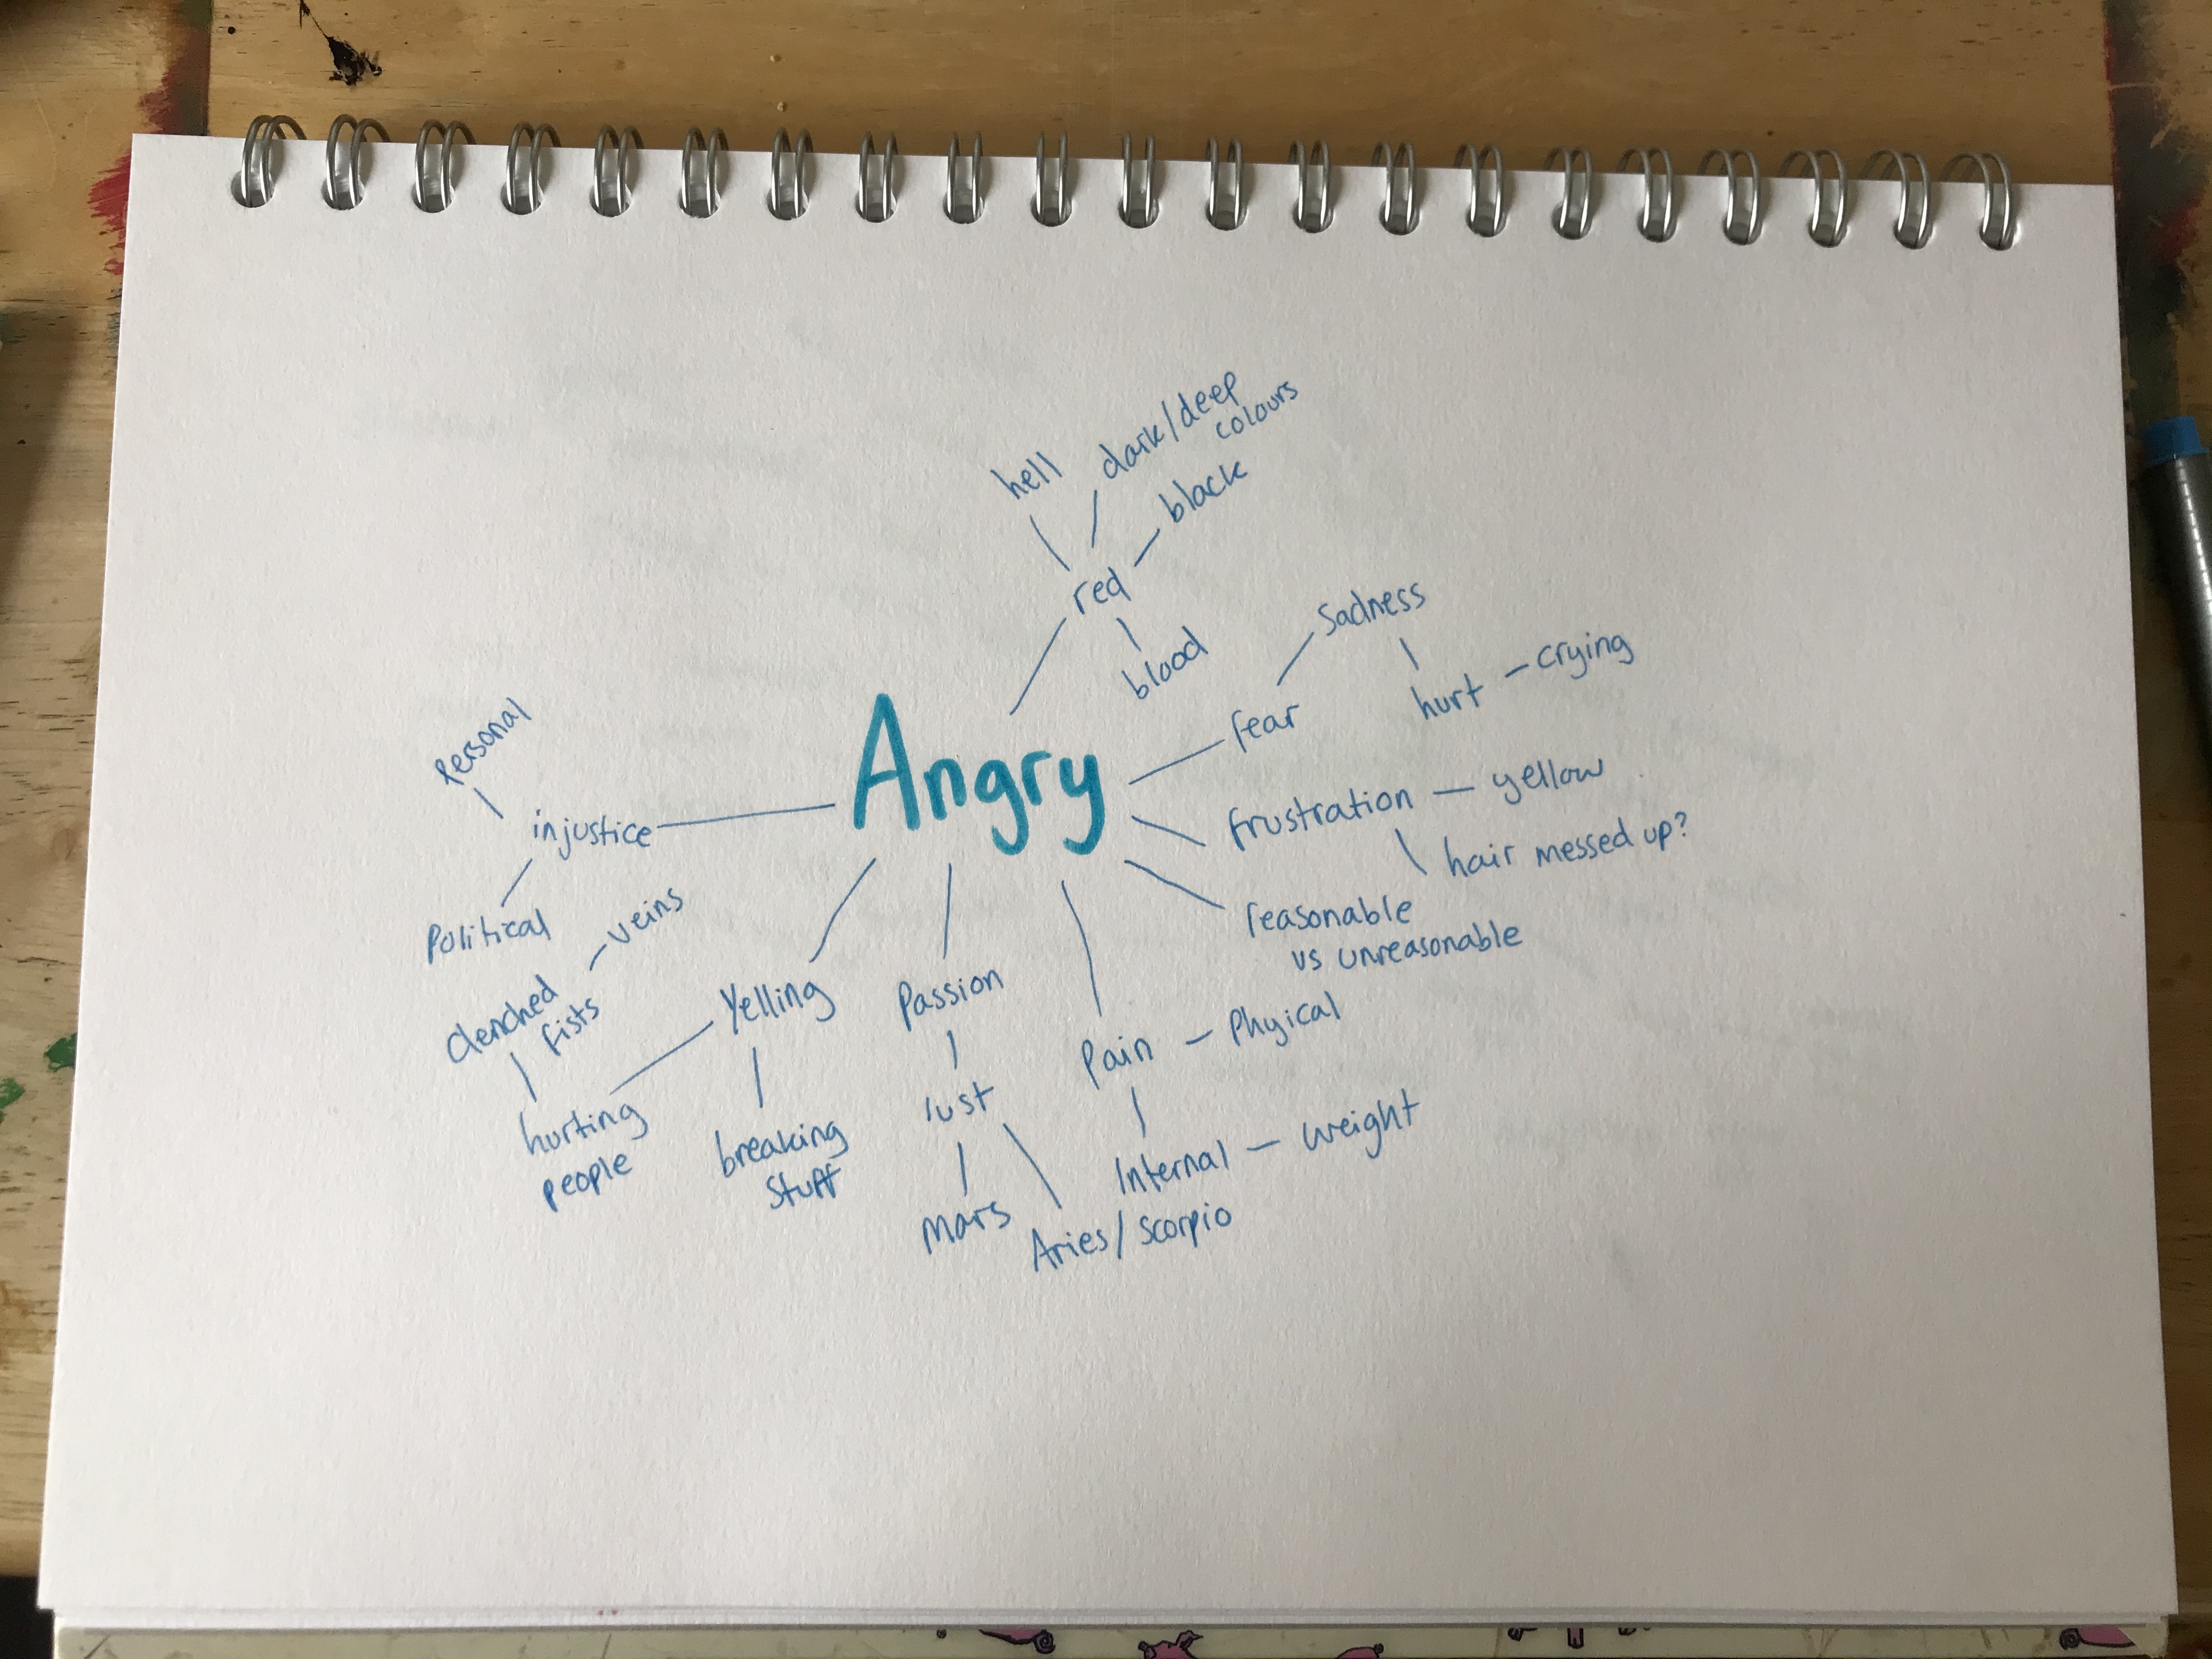 hell
dark/deep
colours
black
red
blood
Sadness
hurt
crying
fear
Angry
Personal
injustice
Political
frustration
yellow
hair messed up?
reasonable
vs unreasonable
veins
clenched
fists
Yelling
hurting
people
breaking
stuff
Passion
lust
Mars
Aries/scorpio
Pain
Phyical
Internal
weight